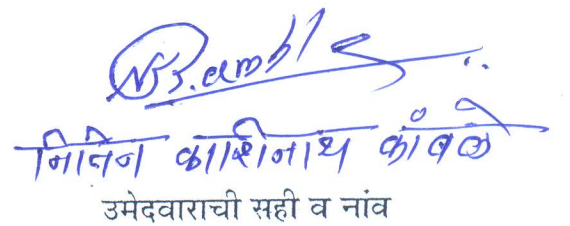 नितिन काशिनाथ कांबळे
उमेदवाराची सही व नांव